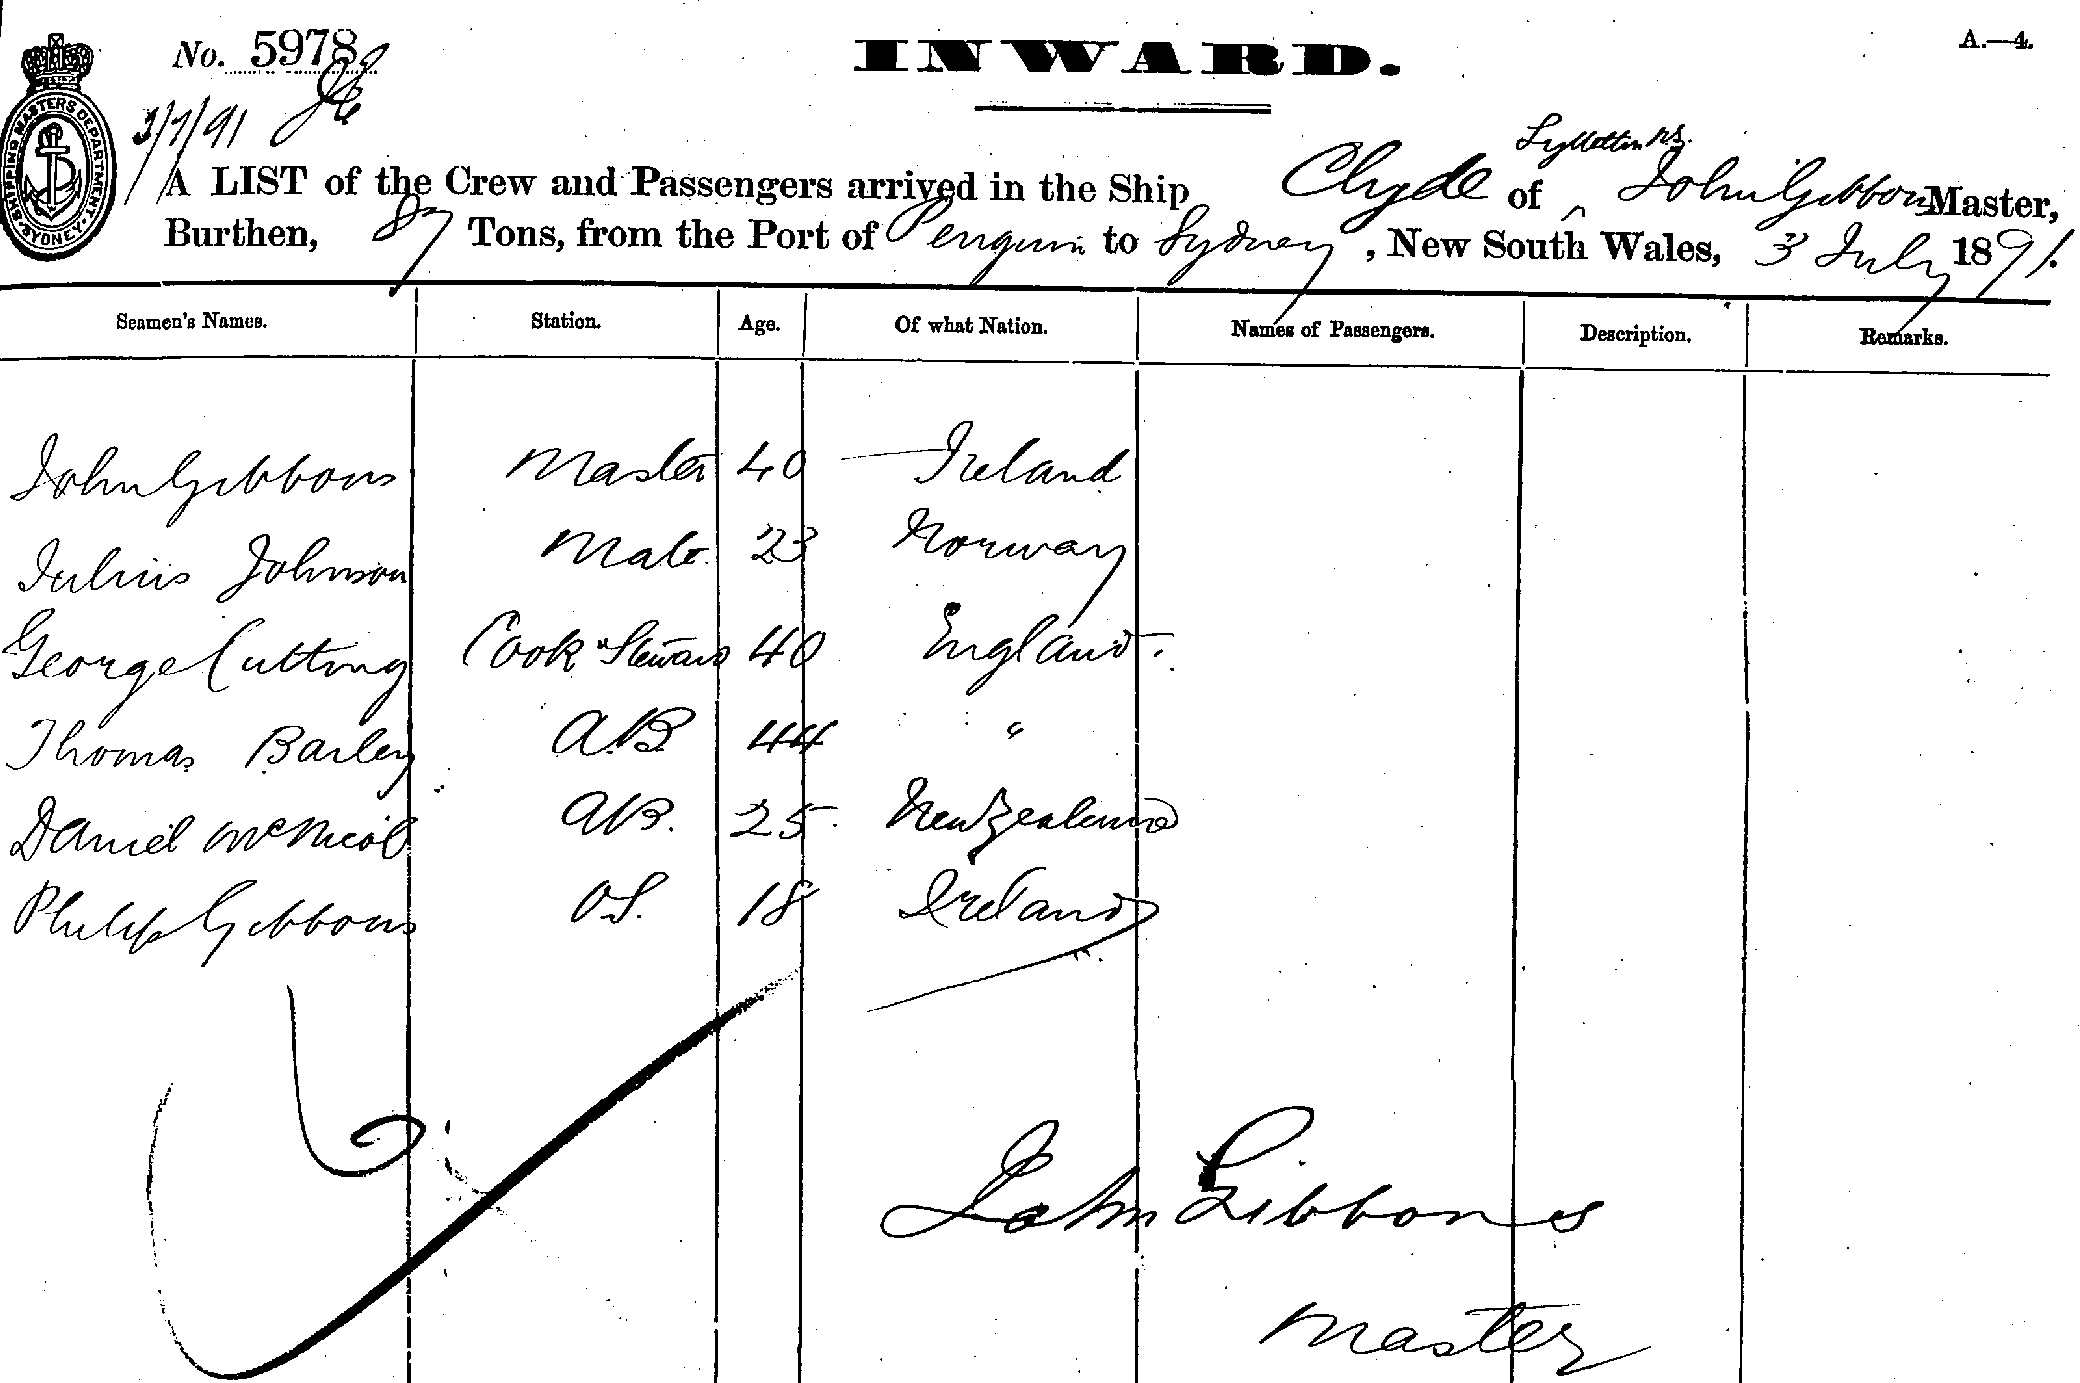 No. 5978
INWARD.
A.—4.
3/7/91
SHIPPING MASTERS DEPARTMENT SYDNEY
Lyttelton NZ.
A LIST of the Crew and Passengers arrived in the Ship Clyde of ^ John Gibbons Master,
Burthen, 87 Tons, from the Port of Penguin to Sydney, New South Wales, 3 July 1891.
Seamen's Names. Station. Age. Of what Nation. Names of Passengers. Description. Remarks.
John Gibbons Master 40 Ireland
Julius Johnson Mate 23 Norway
George Cutting Cook & Steward 40 England
Thomas Barley A.B. 44 "
Daniel McNicol AB. 25 New Zealand
Philip Gibbons OS. 18 Ireland
John Gibbons
Master